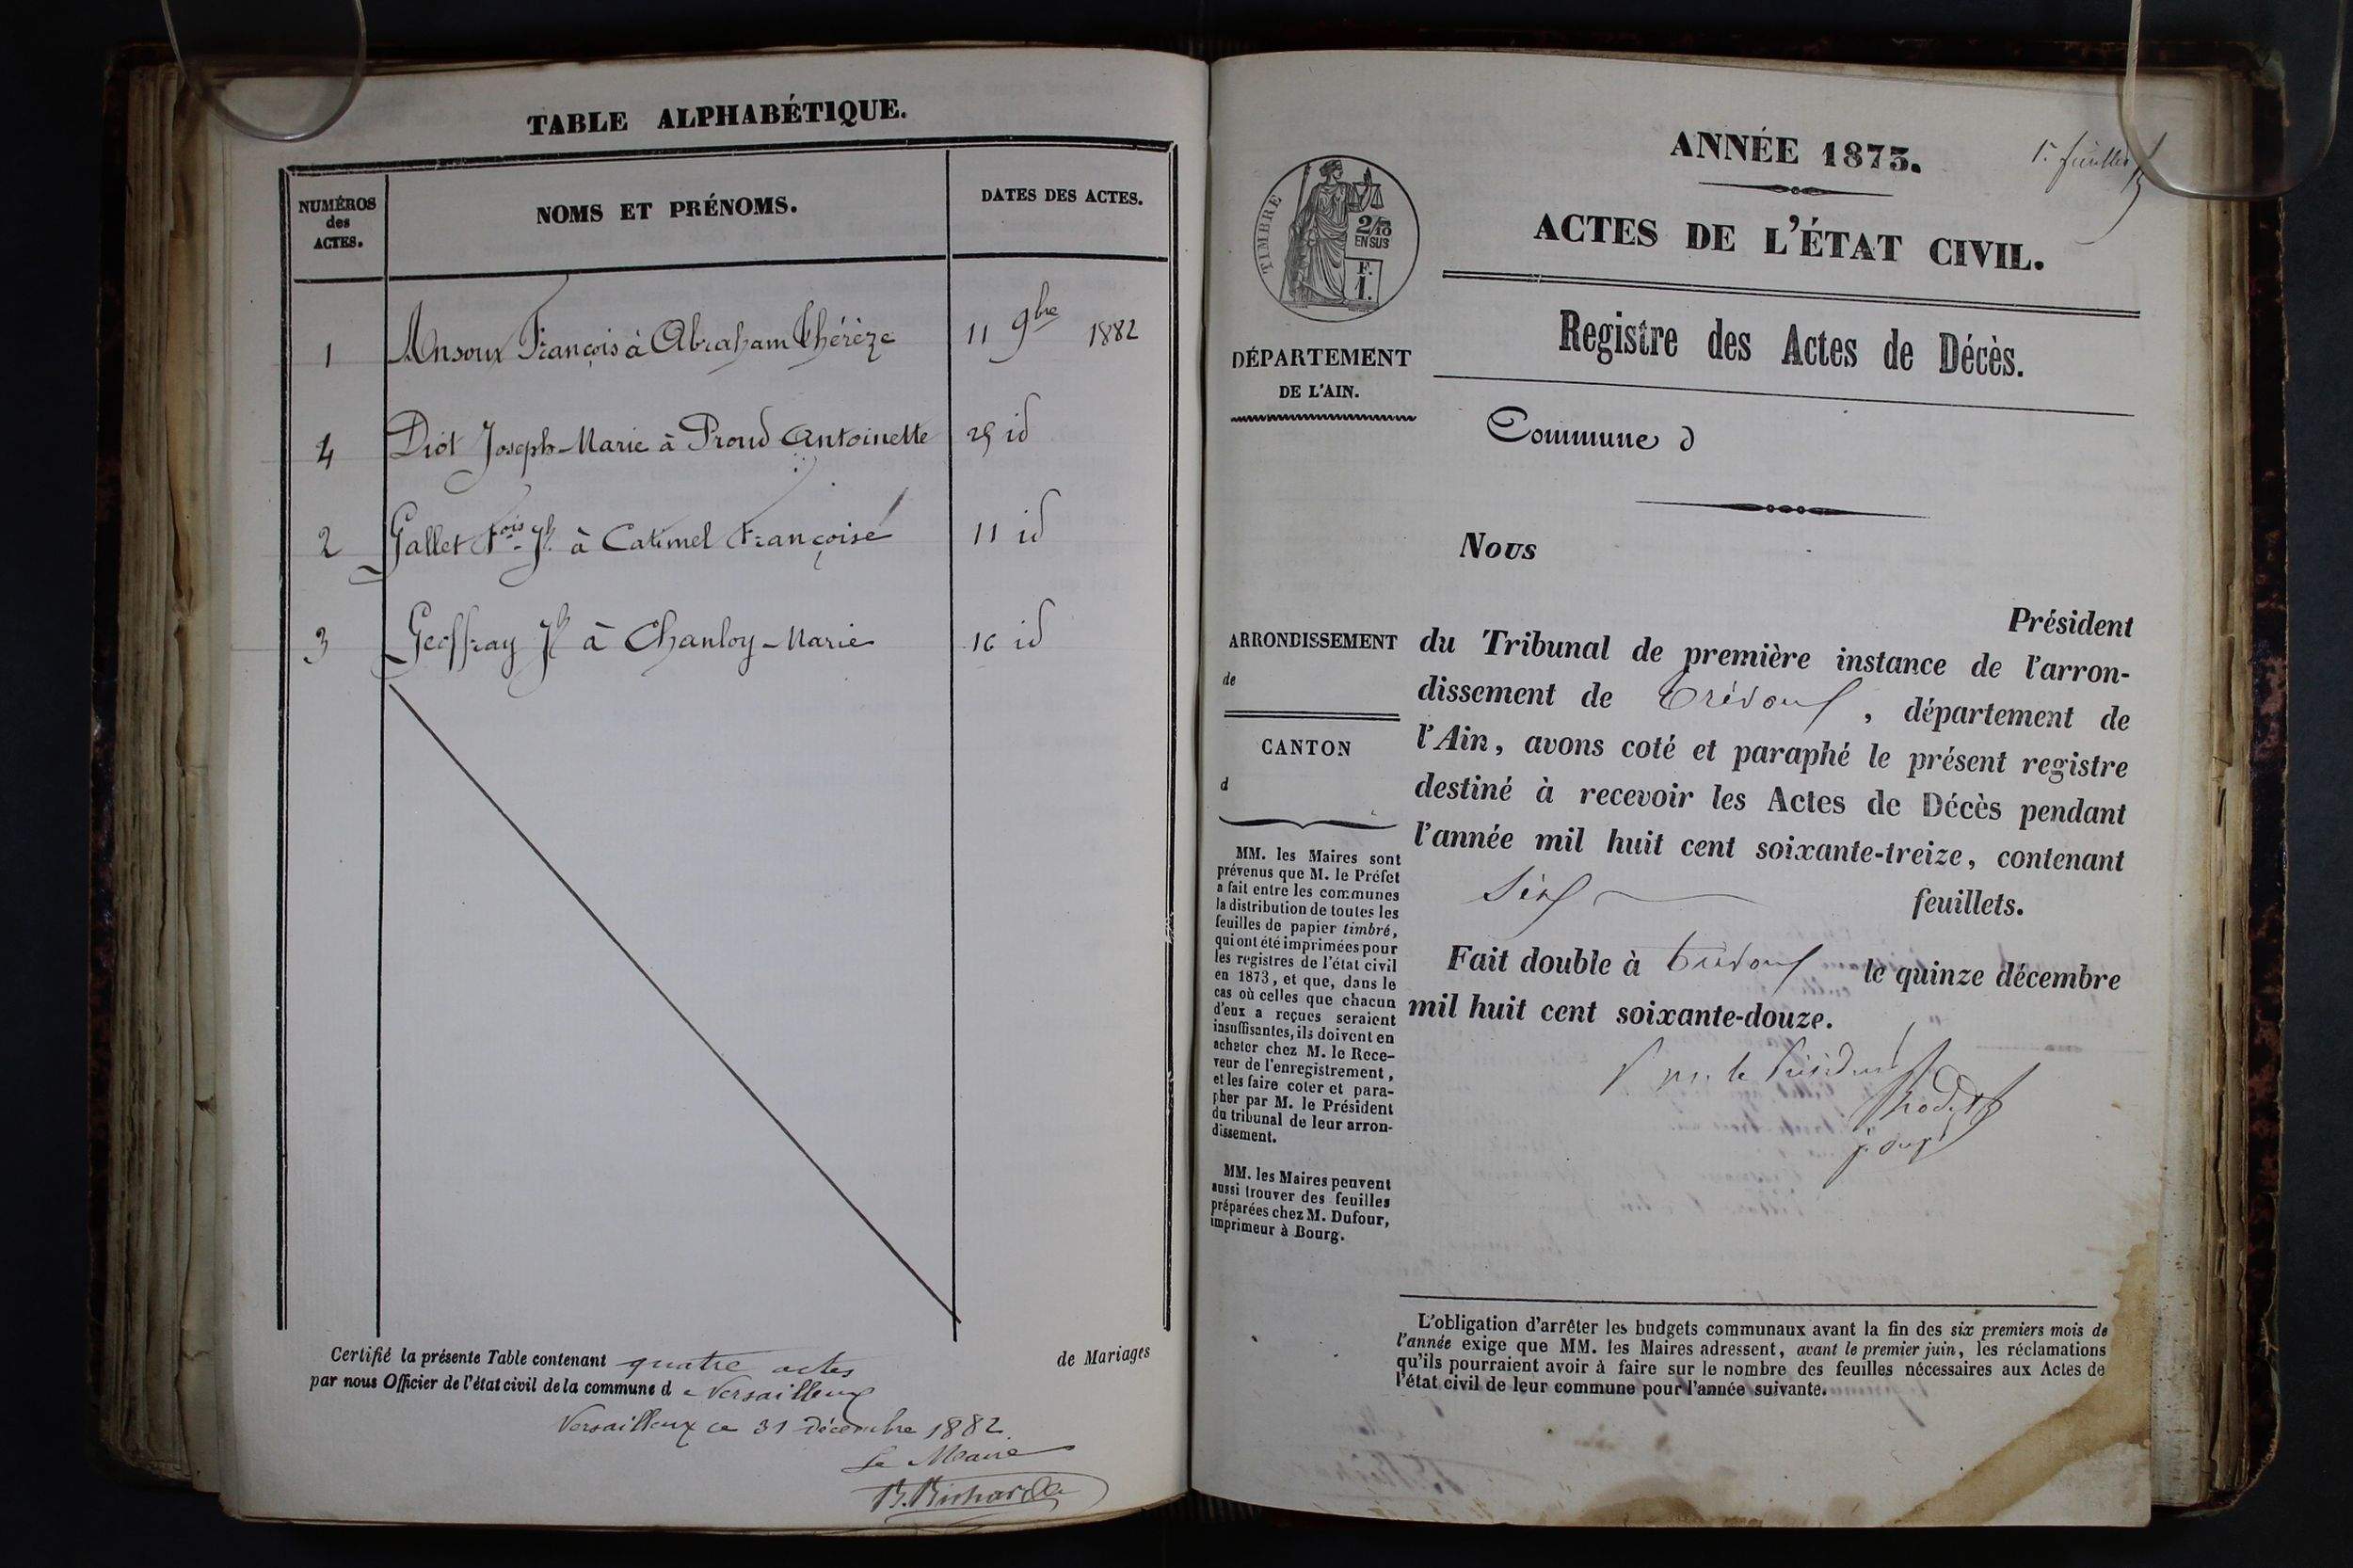 TABLE ALPHABÉTIQUE.
NUMÉROS des ACTES.
NOMS ET PRÉNOMS.
DATES DES ACTES.
1 Ansoux François à Abraham Thérèze 11 9bre 1882
4 Diot Joseph-Marie à Proud Antoinette 25 id
2 Gallet Fois-Jh à Catimel Françoise 11 id
3 Geoffray Jh à Chanloy-Marie 16 id
Certifié la présente Table contenant quatre actes de Mariages
par nous Officier de l'état civil de la commune d e Versailleux
Versailleux ce 31 décembre 1882.
Le Maire
B. Richarde
ANNÉE 1873.
1r feuillet
ACTES DE L'ÉTAT CIVIL.
TIMBRE
2/10
EN SUS
F.
1.
Registre des Actes de Décès.
DÉPARTEMENT
DE L'AIN.
Commune d
Nous
Président
ARRONDISSEMENT
de
CANTON
d
du Tribunal de première instance de l'arron-
dissement de Trévoux, département de
l'Ain, avons coté et paraphé le présent registre
destiné à recevoir les Actes de Décès pendant
l'année mil huit cent soixante-treize, contenant
Six feuillets.
Fait double à Trévoux le quinze décembre
mil huit cent soixante-douze.
Pr le Président
MM. les Maires sont
prévenus que M. le Préfet
a fait entre les communes
la distribution de toutes les
feuilles de papier timbré,
qui ont été imprimées pour
les registres de l'état civil
en 1873, et que, dans le
cas où celles que chacun
d'eux a reçues seraient
insuffisantes, ils doivent en
acheter chez M. le Rece-
veur de l'enregistrement,
et les faire coter et para-
pher par M. le Président
du tribunal de leur arron-
dissement.
MM. les Maires peuvent
aussi trouver des feuilles
préparées chez M. Dufour,
imprimeur à Bourg.
L'obligation d'arrêter les budgets communaux avant la fin des six premiers mois de
l'année exige que MM. les Maires adressent, avant le premier juin, les réclamations
qu'ils pourraient avoir à faire sur le nombre des feuilles nécessaires aux Actes de
l'état civil de leur commune pour l'année suivante.